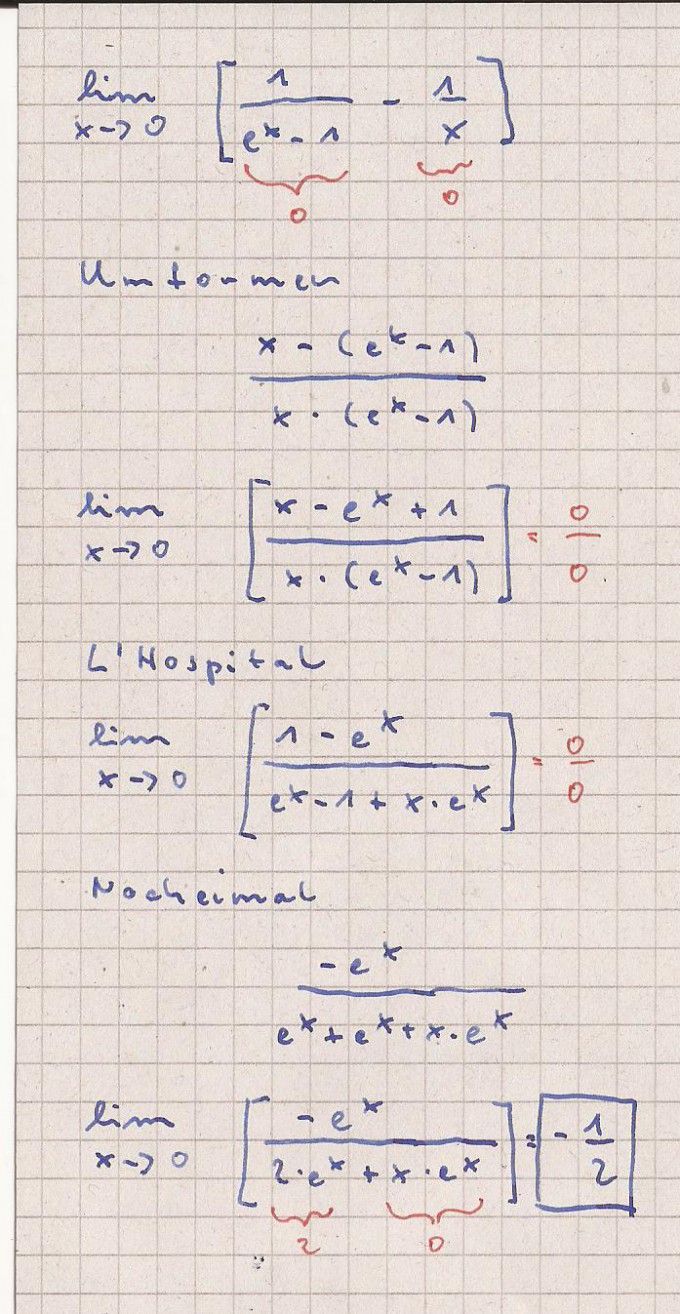 lim x→0 [ 1/(e^x - 1) - 1/x ]
0 0
Umformen
(x - (e^x - 1)) / (x · (e^x - 1))
lim x→0 [ (x - e^x + 1) / (x · (e^x - 1)) ] = 0/0
L'Hospital
lim x→0 [ (1 - e^x) / (e^x - 1 + x · e^x) ] = 0/0
Nocheimal
(-e^x) / (e^x + e^x + x · e^x)
lim x→0 [ (-e^x) / (2 · e^x + x · e^x) ] = -1/2
2 0